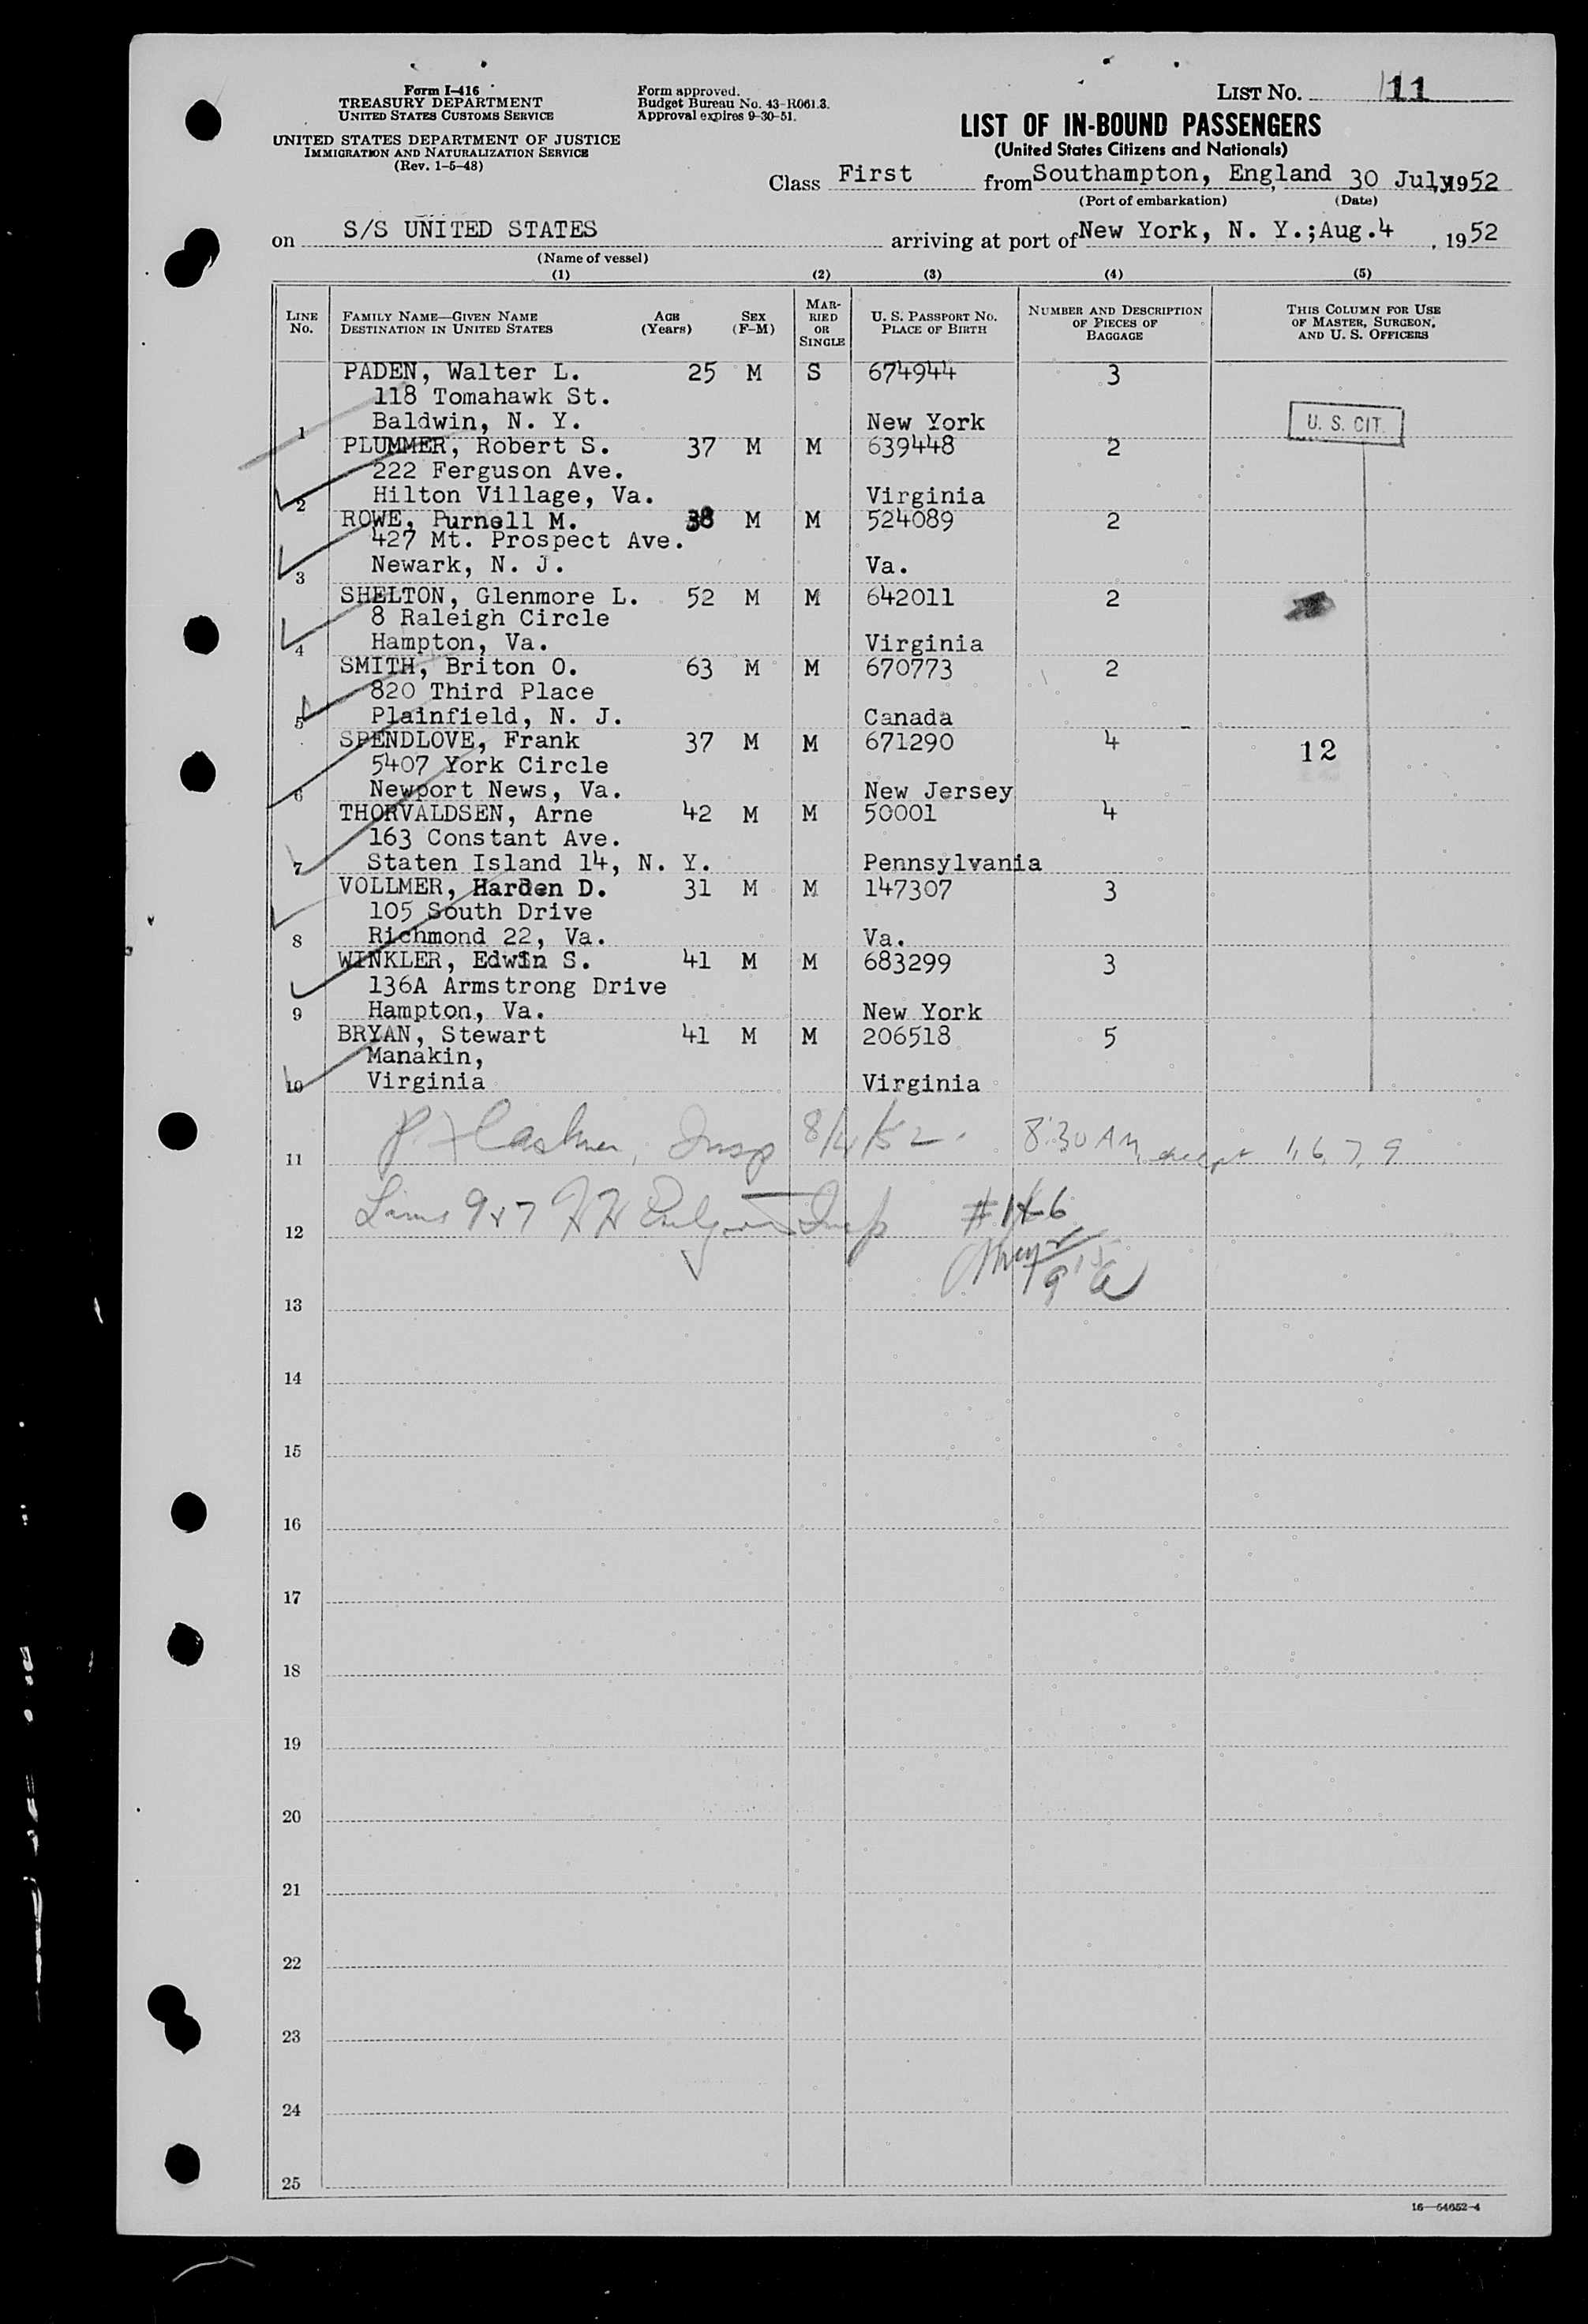 Form I-416
TREASURY DEPARTMENT
UNITED STATES CUSTOMS SERVICE
UNITED STATES DEPARTMENT OF JUSTICE
IMMIGRATION AND NATURALIZATION SERVICE
(Rev. 1-5-48)
Form approved.
Budget Bureau No. 43-R061.3.
Approval expires 9-30-51.
LIST No. 11
LIST OF IN-BOUND PASSENGERS
(United States Citizens and Nationals)
Class First from Southampton, England 30 July, 1952
(Port of embarkation) (Date)
on S/S UNITED STATES arriving at port of New York, N. Y.; Aug. 4, 1952
(Name of vessel)
(1) (2) (3) (4) (5)
LINE No. FAMILY NAME—GIVEN NAME DESTINATION IN UNITED STATES AGE (Years) SEX (F-M) MARRIED OR SINGLE U. S. PASSPORT No. PLACE OF BIRTH NUMBER AND DESCRIPTION OF PIECES OF BAGGAGE THIS COLUMN FOR USE OF MASTER, SURGEON, AND U. S. OFFICERS
PADEN, Walter L. 25 M S 674944 3
118 Tomahawk St.
1 Baldwin, N. Y. New York U. S. CIT.
PLUMMER, Robert S. 37 M M 639448 2
222 Ferguson Ave.
2 Hilton Village, Va. Virginia
ROWE, Purnell M. 38 M M 524089 2
427 Mt. Prospect Ave.
3 Newark, N. J. Va.
SHELTON, Glenmore L. 52 M M 642011 2
8 Raleigh Circle
4 Hampton, Va. Virginia
SMITH, Briton O. 63 M M 670773 2
820 Third Place
5 Plainfield, N. J. Canada
SPENDLOVE, Frank 37 M M 671290 4 12
5407 York Circle
6 Newport News, Va. New Jersey
THORVALDSEN, Arne 42 M M 50001 4
163 Constant Ave.
7 Staten Island 14, N. Y. Pennsylvania
VOLLMER, Harden D. 31 M M 147307 3
105 South Drive
8 Richmond 22, Va. Va.
WINKLER, Edwin S. 41 M M 683299 3
136A Armstrong Drive
9 Hampton, Va. New York
BRYAN, Stewart 41 M M 206518 5
Manakin,
10 Virginia Virginia
11 Insp 8/4/52. 8:30 AM except 1, 6, 7, 9
12 Lines 9 & 7 Insp #1 & 6
13
14
15
16
17
18
19
20
21
22
23
24
25
16—54652-4